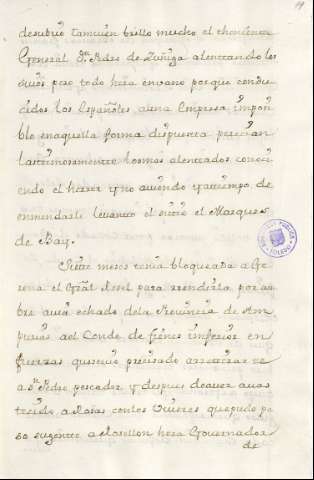 descubrio tamvien brillo mucho el theniente
General Dn. Pedro de Zuñiga alentando los
suios pero todo hera en vano porque condu
cidos los Españoles a una Empressa impoci
ble en aquella forma dispuesta perecian
lastimosamente los mas alentados conoci
endo el herror y no aviendo ya tiempo de
enmendarle levanto el sitio el Marques
de Bay.
Siete meses tenia bloqueada a Ge
rona el Gral para rendirla por am
bre avia echado de la Provincia de Am
purias al Conde de inferior en
fuerzas quien fue precisado a
a Sn. Pedro pescador y despues de aver avas
tecido a Rosas con los viveres que pudo pa
so su gente a Rosellon hera Governador
de